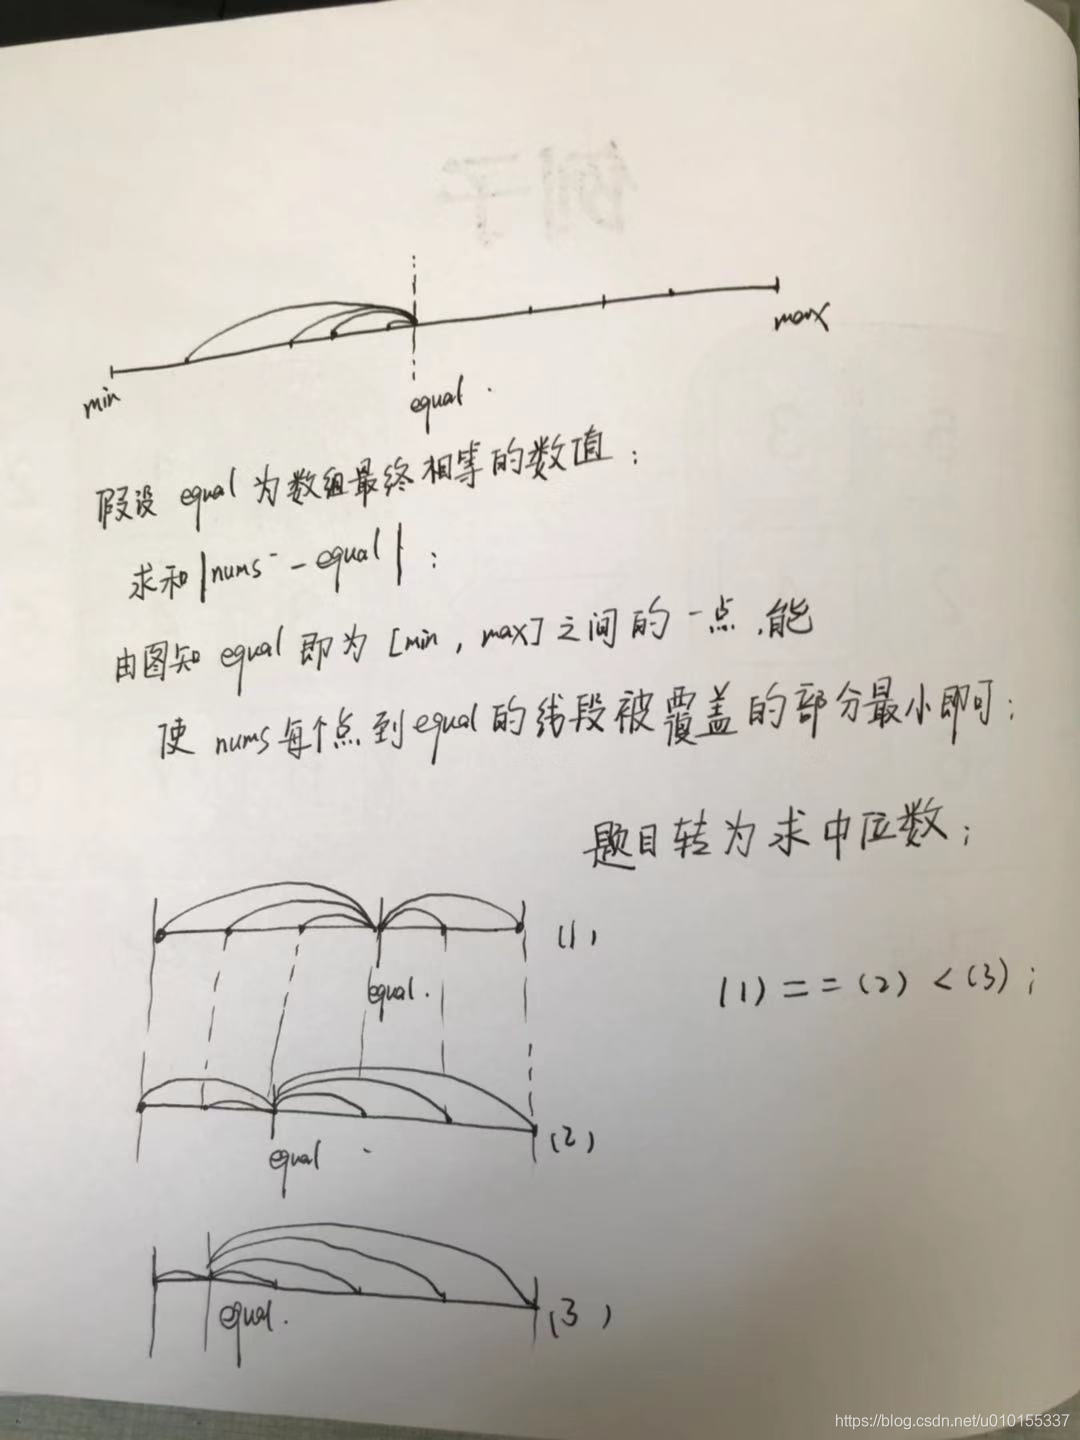 例子
max
min
equal .
假设 equal 为数组最终相等的数值;
求和|nums - equal|:
由图知 equal 即为 [min, max]之间的一点,能
使 nums每个点到equal的线段被覆盖的部分最小即可;
题目转为求中位数;
(1)
equal.
(1) == (2) < (3);
(2)
equal
(3)
equal.
https://blog.csdn.net/u010155337